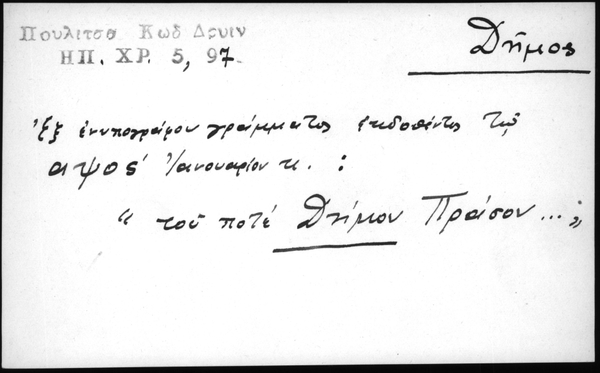 Πουλιτσα Κωδ Δρυιν
ΗΠ. ΧΡ. 5, 97.
Δῆμος
Ἐξ ἐνυπογράφου γράμματος ἐκδοθέντος τῇ
αψοϛ´ Ἰανουαρίου κ. :
“ τοῦ ποτέ Δήμου Πράσου... „